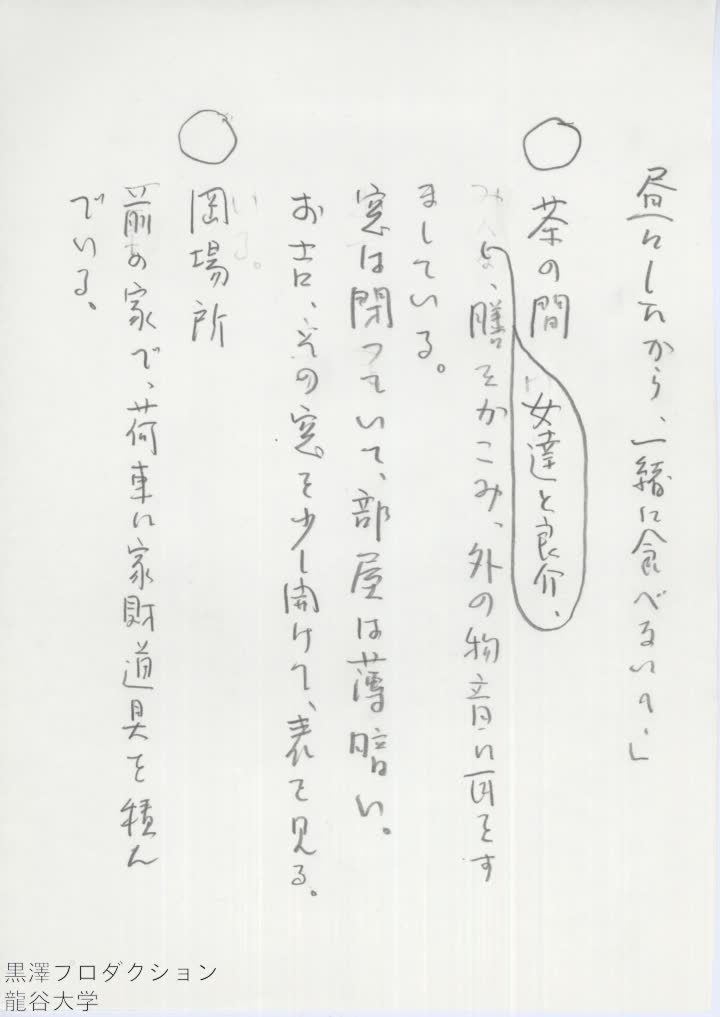 昼にしたから、一緒に食べるいゝ」
○茶の間
女達と良介、
膳をかこみ、外の物音に耳をす
ましている。
窓は閉っていて、部屋は薄暗い。
お吉、その窓を少し開けて、表を見る。
○岡場所
前の家で、荷車に家財道具を積ん
でいる。
黒澤プロダクション
龍谷大学